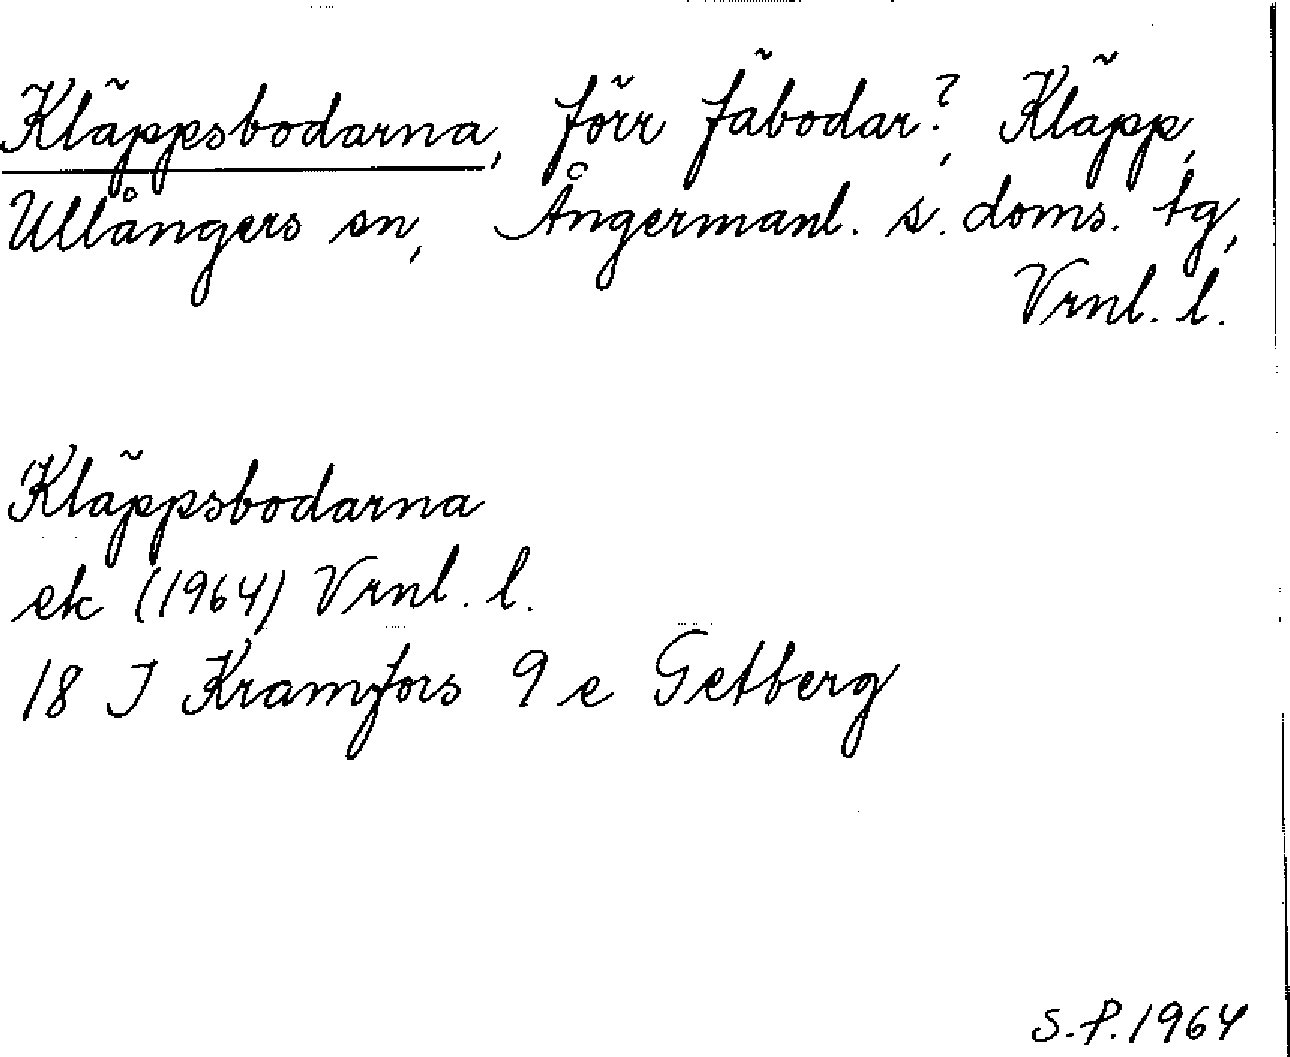 Kläppsbodarna, förr fäbodar?, Kläpp,
Ullångers sn, Ångermanl. s. doms. tg,
Vrnl. l.
Kläppsbodarna
ek (1964) Vrnl. l.
18 I Kramfors 9 e Getberg
S.P.1964